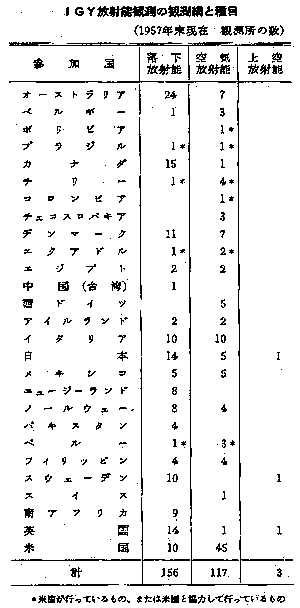 IGY放射能観測の観測網と種目
(1957年末現在 観測所の数)
参加国 落下放射能 空気放射能 上空放射能
オーストラリア 24 7
ベルギー 1 3
ボリビア 1*
ブラジル 1* 1*
カナダ 15 1
チリー 1* 4*
コロンビア 1*
チェコスロバキア 3
デンマーク 11 7
エクアドル 1* 2*
エジプト 2 2
中国(台湾) 1
西ドイツ 5
アイルランド 2 2
イタリア 10 10
日本 14 5 1
メキシコ 5 5
ニュージーランド 8
ノールウェー 8 4
パキスタン 4
ペルー 1* 3*
フィリッピン 4 4
スウェーデン 10 1
スイス 1
南アフリカ 9
英国 14 1 1
米国 10 45
計 156 117 3
*米国が行っているもの、または米国と協力して行っているもの